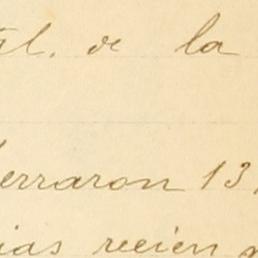 de la
erraron 13
ias recien